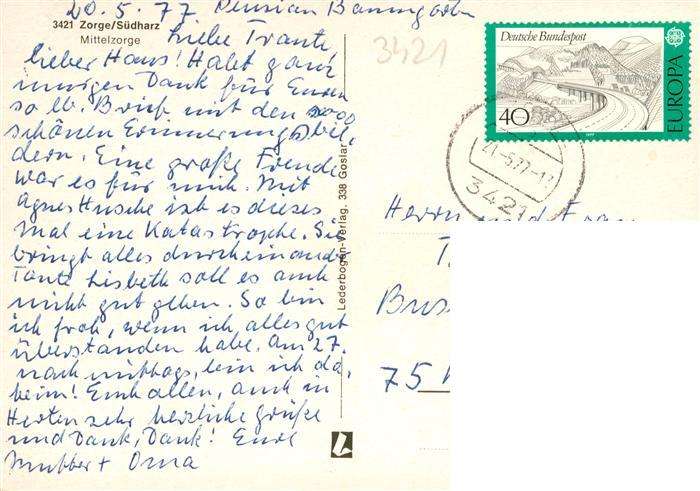 20.5.77 Pension Baumgarten
3421 Zorge/Südharz
Mittelzorge
Liebe Traute,
lieber Hans! Habt ganz
innigen Dank für Euren
so lb. Brief mit den sooo
schönen Erinnerungsbil-
dern. Eine große Freude
war es für mich. Mit
Agnes Husche ist es dieses
Mal eine Katastrophe. Sie
bringt alles durcheinander
Tante Lisbeth soll es auch
nicht gut gehen. So bin
ich froh, wenn ich alles gut
überstanden habe. Am 27.
nachmittags, bin ich da-
heim! Euch allen, auch in
Herten sehr herzliche Grüße
und Dank, Dank! Eure
Mutter + Oma
Lederbogen-Verlag. 338 Goslar
3421
Deutsche Bundespost
40
EUROPA
1977
21.-5.77-17
3421
Herrn und Frau
T
Brus
75